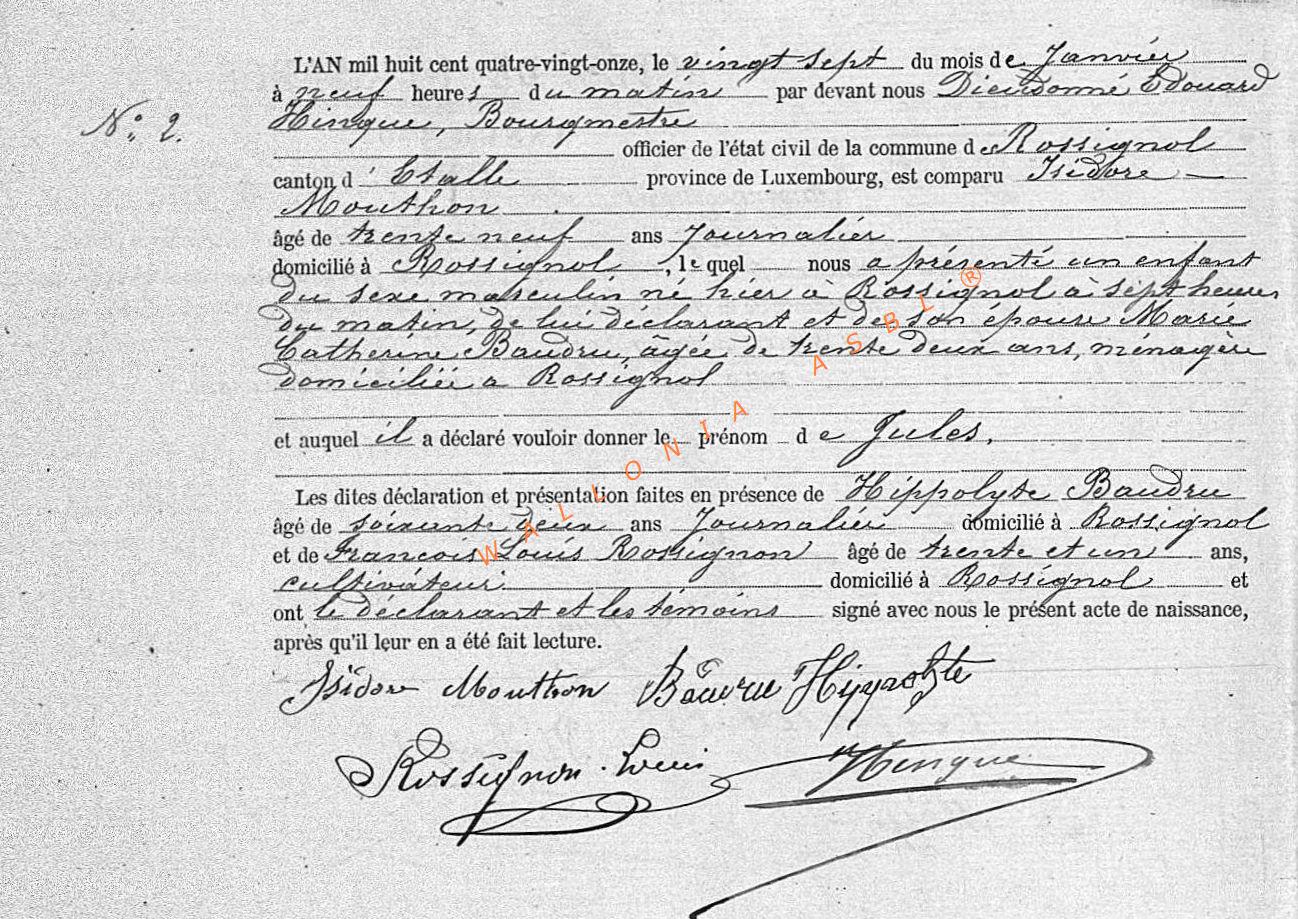 L'AN mil huit cent quatre-vingt-onze, le vingt sept du mois de Janvier
à neuf heures du matin par devant nous Dieudonné Edouard
N° 2.
Hinque, Bourgmestre
officier de l'état civil de la commune de Rossignol
canton d'Etalle province de Luxembourg, est comparu Isidore
Mouthon
âgé de trente neuf ans Journalier
domicilié à Rossignol, lequel nous a présenté un enfant
du sexe masculin né hier à Rossignol à sept heures
du matin, de lui déclarant et de son epouse Marie
Catherine Baudru, âgée de trente deux ans, ménagère
domiciliée a Rossignol
et auquel il a déclaré vouloir donner le prénom de Jules.
Les dites déclaration et présentation faites en présence de Hippolyte Baudru
âgé de soixante deux ans Journalier domicilié à Rossignol
et de François Louis Rossignon âgé de trente et un ans,
cultivateur domicilié à Rossignol et
ont le déclarant et les témoins signé avec nous le présent acte de naissance,
après qu'il leur en a été fait lecture.
Isidore Mouthon Baudru Hippolyte
Rossignon Louis Hinque
WALLONIA ASBL ®